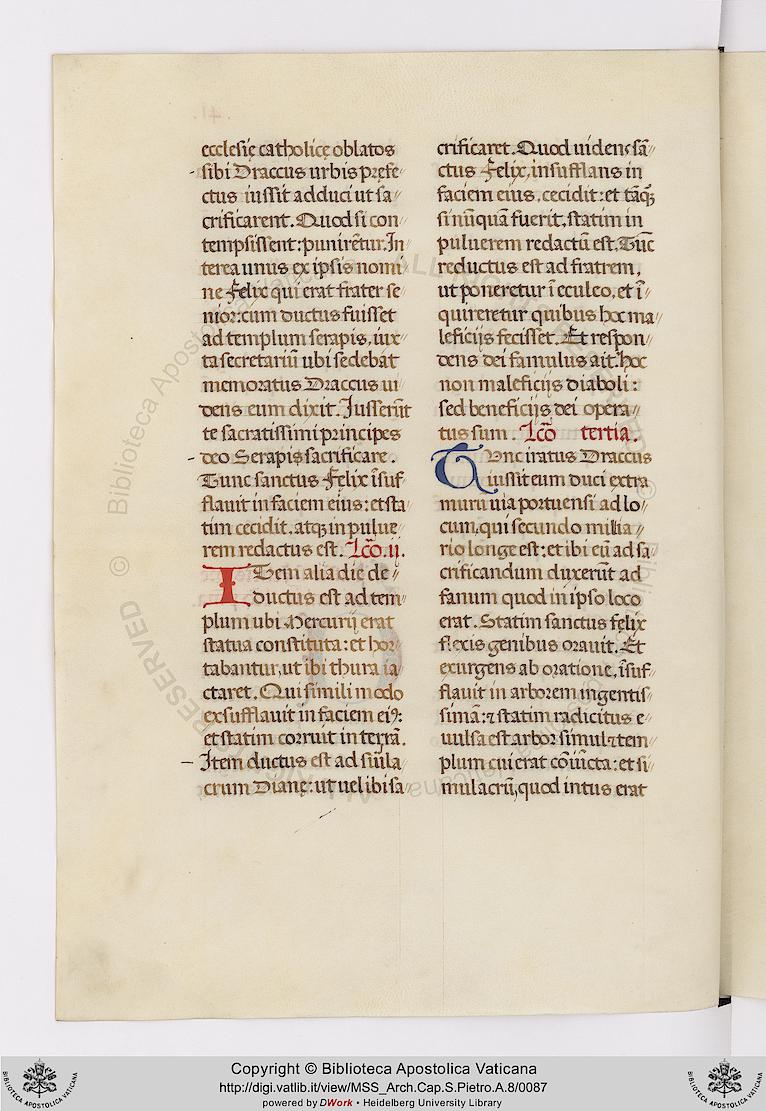 ecclesię catholicę oblatos
sibi Draccus urbis prefe//
ctus iussit adduci ut sa//
crificarent. Quod si con
tempsissent: punirēt̃. In
terea unus ex ipsis nomi
ne Felix qui erat frater se
nior: cum ductus fuisset
ad templum serapis, iux
ta secretariũ ubi sedebat
memoratus Draccus ui
dens eum dixit. Iusserũt
te sacratissimi principes
deo Serapis sacrificare.
Tunc sanctus Felix ĩsuf//
flauit in faciem eius: et sta
tim cecidit. atqȝ in pulue//
rem redactus est. Lcõ. ij.
ITem alia die de//
ductus est ad tem//
plum ubi Mercurij erat
statua constituta: et hor//
tabantur, ut ibi thura ia
ctaret. Qui simili modo
exsufflauit in faciem eiꝰ:
et statim corruit in terrã.
Item ductus est ad sĩula//
crum Dianę: ut uel ibi sa//
crificaret. Quod uidens sã//
ctus Felix, insufflans in
faciem eius. cecidit: et tãqȝ
si nũquã fuerit, statim in
puluerem redactũ est. Tũc
reductus est ad fratrem,
ut poneretur ĩ eculeo, et ĩ//
quireretur quibus hoc ma//
leficijs fecisset. Et respon//
dens dei famulus ait. hoc
non maleficijs diaboli:
sed beneficijs dei opera//
tus sum. Lcõ tertia.
TUnc iratus Draccus
iussit eum duci extra
murũ uia portuensi ad lo//
cum, qui secundo millia//
rio longe est: et ibi eũ ad sa//
crificandum duxerũt ad
fanum quod in ipso loco
erat. Statim sanctus felix
flexis genibus orauit. Et
exurgens ab oratione, ĩsuf//
flauit in arborem ingentis//
simã: ⁊ statim radicitus e//
uulsa est arbor simul ⁊ tem//
plum cui erat cõiũcta: et si//
mulacrũ, quod intus erat
Copyright © Biblioteca Apostolica Vaticana
http://digi.vatlib.it/view/MSS_Arch.Cap.S.Pietro.A.8/0087
powered by DWork • Heidelberg University Library
BIBLIOTECA APOSTOLICA VATICANA
BIBLIOTECA APOSTOLICA VATICANA